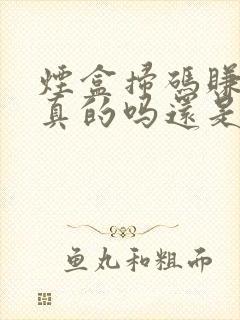 煙盒掃碼賺
真的吗還是
鱼丸和粗面